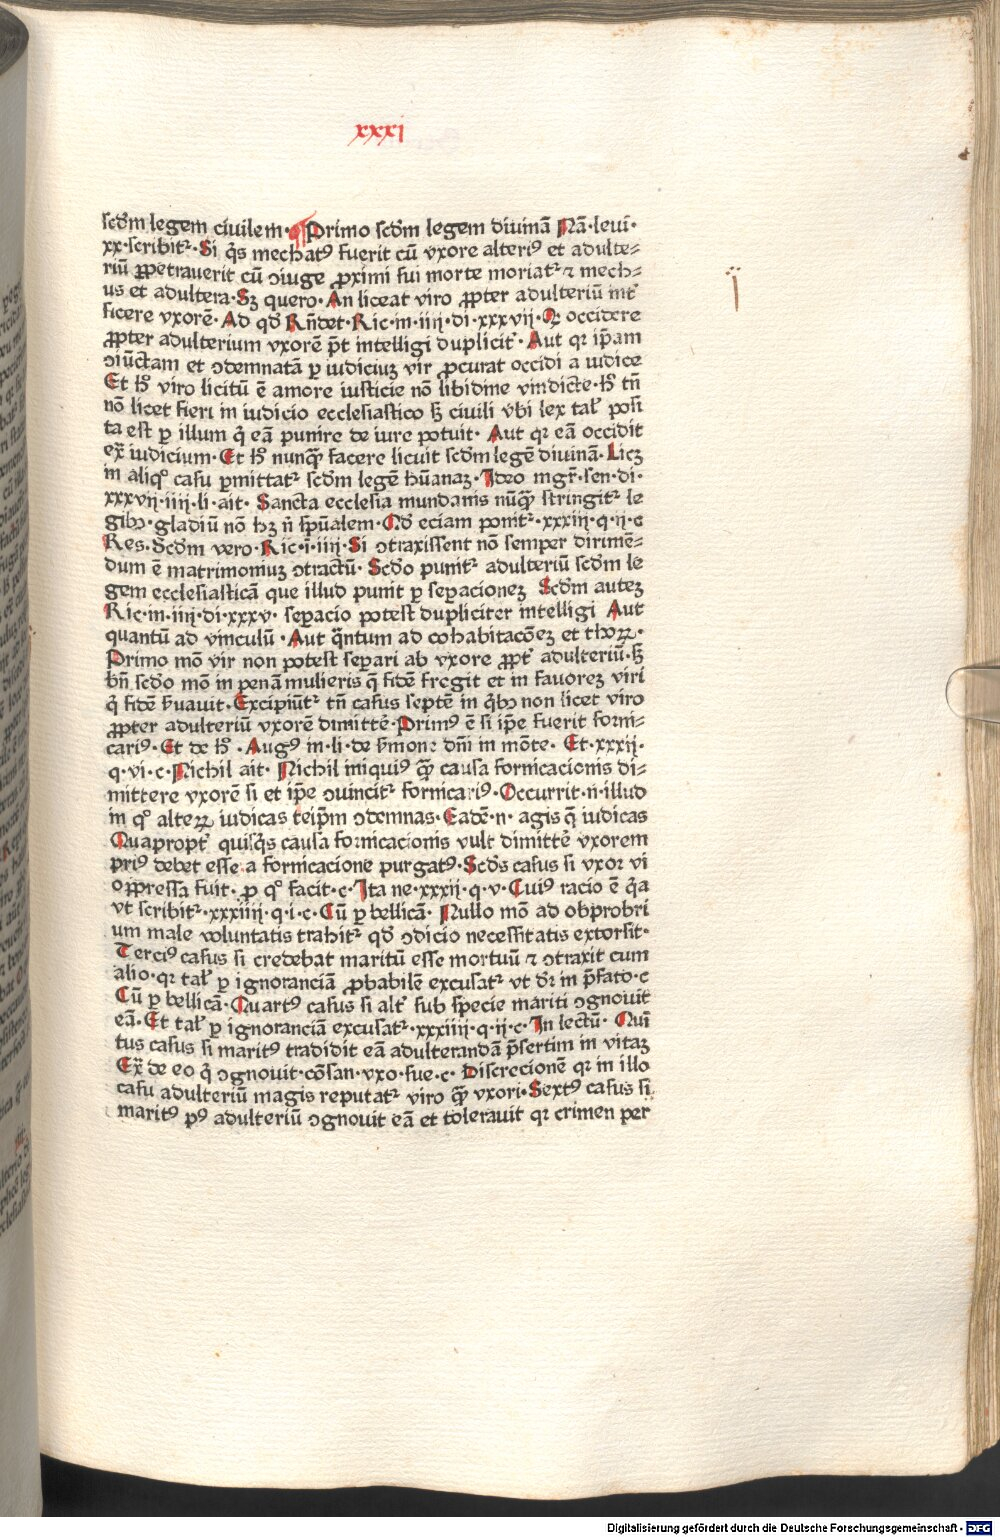 xxxi
scdm legem ciuilem· ¶ Primo scdm legem diuinā Nā·leui·
xx·scribit᷑·Si q̄s mechat⁹ fuerit cū vxore alteri⁹ et adulte⸗
riū ꝑpetrauerit cū ↄiuge ꝓximi sui morte moriat᷑ ⁊ mech⸗
us et adultera·Sꝫ quero·An liceat viro ꝓpter adulteriū int̄
ficere vxorē·Ad qd̄ Rn̄det·Ric·in·iiij·di·xxxvij·Qꝛ occidere
ꝓpter adulterium vxorē p̄t intelligi duplicit᷑·Aut qꝛ ip̄am
ↄiūctam et ↄdemnatā ꝑ iudiciuꝫ vir ꝓcurat occidi a iudice
Et hͦ viro licitū ē amore iusticie nō libidine vindicte·hͦ tn̄
nō licet fieri in iudicio ecclesiastico sꝫ ciuili vbi lex tal᷑ posi
ta est ꝑ illum q̄ eā punire de iure potuit· Aut qꝛ eā occidit
ex̄ iudicium·Et hͦ nunqꝫ̄ facere licuit scdm legē diuinā·Licꝫ
in aliqͦ casu ꝑmittat᷑ scdm legē hūanaꝫ·Ideo mgr̄·sen·di·
xxxvij·iiij·li·ait· Sancta ecclesia mundanis nūqꝫ̄ stringit᷑ le
gibꝫ·gladiū nō hꝫ n̄ sp̄ualem·Qd̄ eciam ponit᷑·xxxiij·q·ij·c
Res·Scdm vero·Ric·ī·iiij·Si ↄtraxissent nō semper dirimē⸗
dum ē matrimoniuꝫ ↄtractū· Scdo punit᷑ adulteriū scdm le
gem ecclesiasticā que illud punit ꝑ seꝑacioneꝫ Scdm auteꝫ
Ric·in·iiij·di·xxxv· seꝑacio potest dupliciter intelligi Aut
quantū ad vinculū·Aut q̄ntum ad cohabitacōeꝫ et thoꝝ·
Primo mō vir non potest seꝑari ab vxore ꝓpt᷑ adulteriū·sꝫ
bn̄ scdo mō in penā mulieris q̄ fidē fregit et in fauoreꝫ viri
q̄ fidē ẜuauit·Excipiūt᷑ tn̄ casus septē in q̄bꝫ non licet viro
ꝓpter adulteriū vxorē dimittē·Prim⁹ ē si ip̄e fuerit forni⸗
cari⁹·Et de hͦ ·Aug⁹ in·li·de ẜmone dn̄i in mōte· Et·xxxij·
q·vi·c·Nichil ait· Nichil iniqui⁹ qꝫ̄ causa fornicacionis di⸗
mittere vxorē si et ip̄e ↄuincit᷑ fornicari⁹·Occurrit·n·illud
in qͦ alteꝝ iudicas teip̄m ↄdemnas·Eadē·n·agis q̄ iudicas
Quapropt᷑ quisq̄s causa fornicacionis vult dimittē vxorem
pri⁹ debet esse a fornicacione purgat⁹·Scds casus si vxor vi
oppressa fuit· ꝓ qͦ facit·c·Ita ne·xxxij·q·v·Cui⁹ racio ē q̄a
vt scribit᷑·xxxiiij·q·i·c·Cū ꝑ bellicā· Nullo mō ad obprobri
um male voluntatis trahit᷑ qd̄ ↄdicio necessitatis extorsit·
Terci⁹ casus si credebat maritū esse mortuū ⁊ ↄtraxit cum
alio·qꝛ tal᷑ ꝑ ignoranciā ꝓbabilē excusat᷑ vt dr̄ in p̄fato·c
Cū ꝑ bellicā·Quart⁹ casus si alt᷑ sub specie mariti ↄgnouit
eā·Et tal᷑ ꝑ ignoranciā excusat᷑·xxxiiij·q·ij·c·In lectū· Quī
tus casus si marit⁹ tradidit eā adulterandā p̄sertim in vitaꝫ
Ex̄ de eo q̄ ↄgnouit·cōsan·vxo·sue·c· Discrecionē qꝛ in illo
casu adulteriū magis reputat᷑ viro qꝫ̄ vxori·Sext⁹ casus si
marit⁹ p⁹ adulteriū ↄgnouit eā et tolerauit qꝛ crimen per
ï
Digitalisierung gefördert durch die Deutsche Forschungsgemeinschaft - DFG